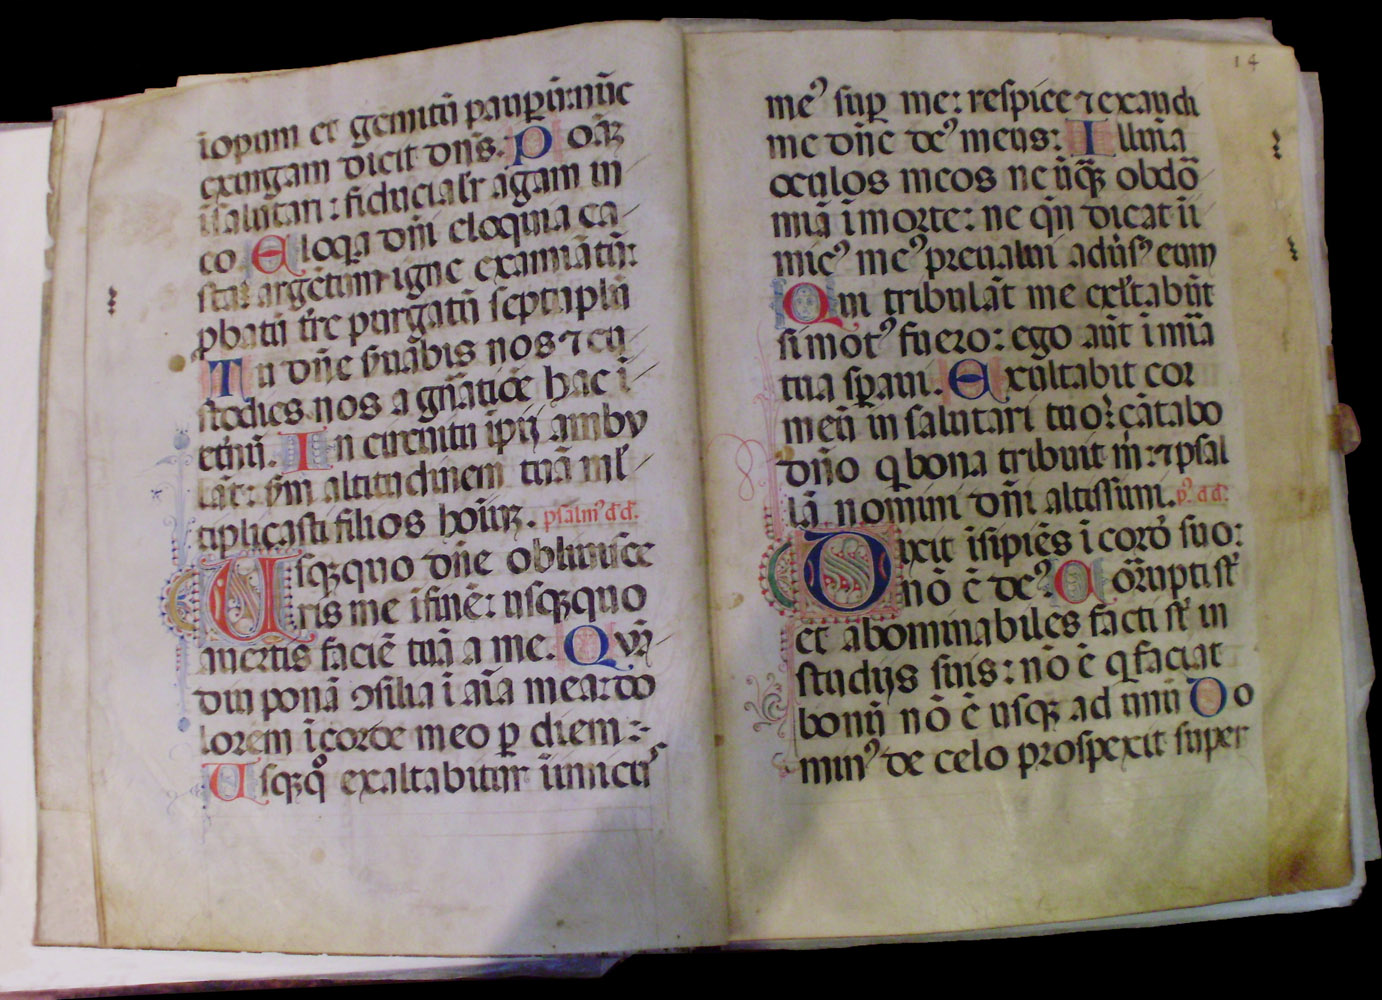 īopum et gemitū pauꝑū: nūc
exurgam dicit dn̄s. Ponā
ī salutari: fiducialr̄ agam in
eo Eloqa dn̄i eloquia ca
sta: argētum igne examīatū:
ꝓbatū tr̄e purgatū septuplū
Tu dn̄e s̄uabis nos ⁊ cu
stodies nos a gn̄atiōe hac ī
et̄nū. In circuitu īpij ambu
lāt: s̄m altitudinem tuā ml̄
tiplicasti filios hoīuꝫ. psalmꝰ dd.
Usqꝫquo dn̄e obliuisce
ris me ī finē: usqꝫquo
auertis faciē tuā a me. Quā
diu ponā ꝯsilia ī aīa mea: do
lorem ī corde meo ꝑ diem:
Usqꝫqͦ exaltabitur inimicꝰ
14
meꝰ suꝑ me: respice ⁊ exaudi
me dn̄e deꝰ meus: Illuīa
oculos meos ne ūqꝫ obdō
miā ī morte: ne qn̄ dicat ī
micꝰ meꝰ preualui adūsꝰ eum
Qui tribulāt me exl̄tabūt
si motꝰ fuero: ego aūt ī mīa
tua sꝑaui. Exultabit cor
meū in salutari tuo: cātabo
dn̄o q bona tribuit m̄: ⁊ psal
lā nomini dn̄i altissimi. pꝰ dd.
Dixit īsipiēs ī cordͤ suo:
nō ē deꝰ Corrupti st̄
et abominabiles facti st̄ in
studijs suis: nō ē q faciat
bonū nō ē usqꝫ ad unū Do
minꝰ de celo prospexit super